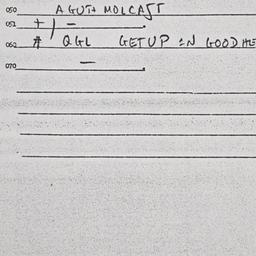 050 A GUT+ MOLCAST
051 + / –
060 # QGL GETUP IN GOOD
070 –